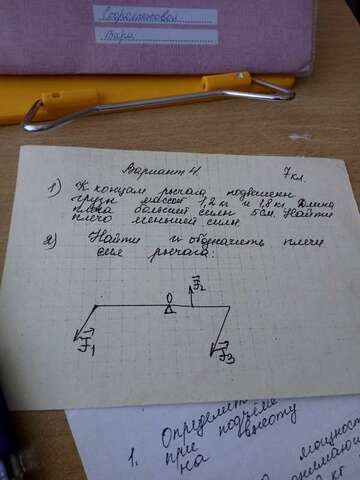 Вари
Вариант 4. 7 кл.
1) К концам рычага подвешены
грузы массой 1,2 кг и 1,8 кг. Длина
плеча большей силы 5 см. Найти
плечо меньшей силы.
2) Найти и обозначить плечи
сил рычага:
O
F₂
F₁
F₃
Определит
1. при подъёме
на высоту
мощност
кг